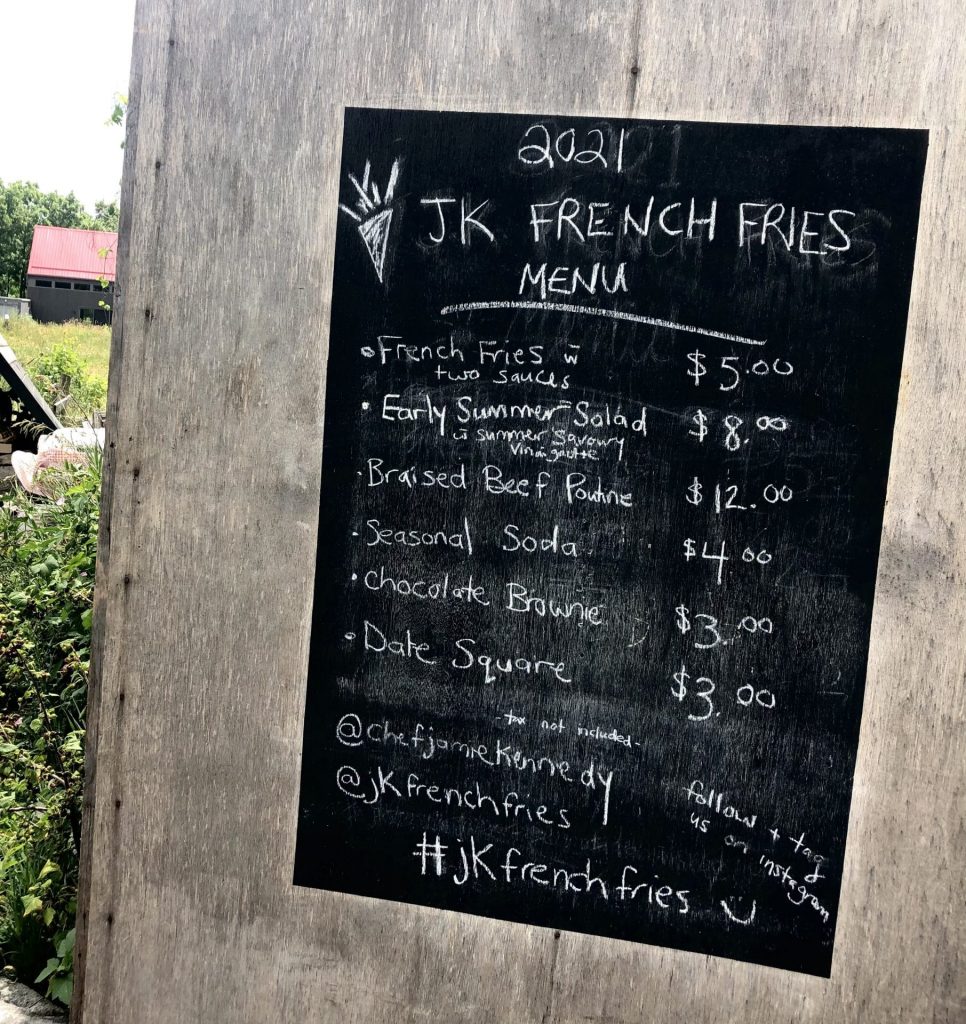 2021
JK FRENCH FRIES
MENU
• French Fries w̄ $5.00
two sauces
• Early Summer Salad $8.00
w̄ summer savoury
vinaigrette
• Braised Beef Poutine $12.00
• Seasonal Soda $4.00
• Chocolate Brownie $3.00
• Date Square $3.00
- tax not included -
@chefjamiekennedy
@jkfrenchfries
follow + tag
us on instagram
#jkfrenchfries